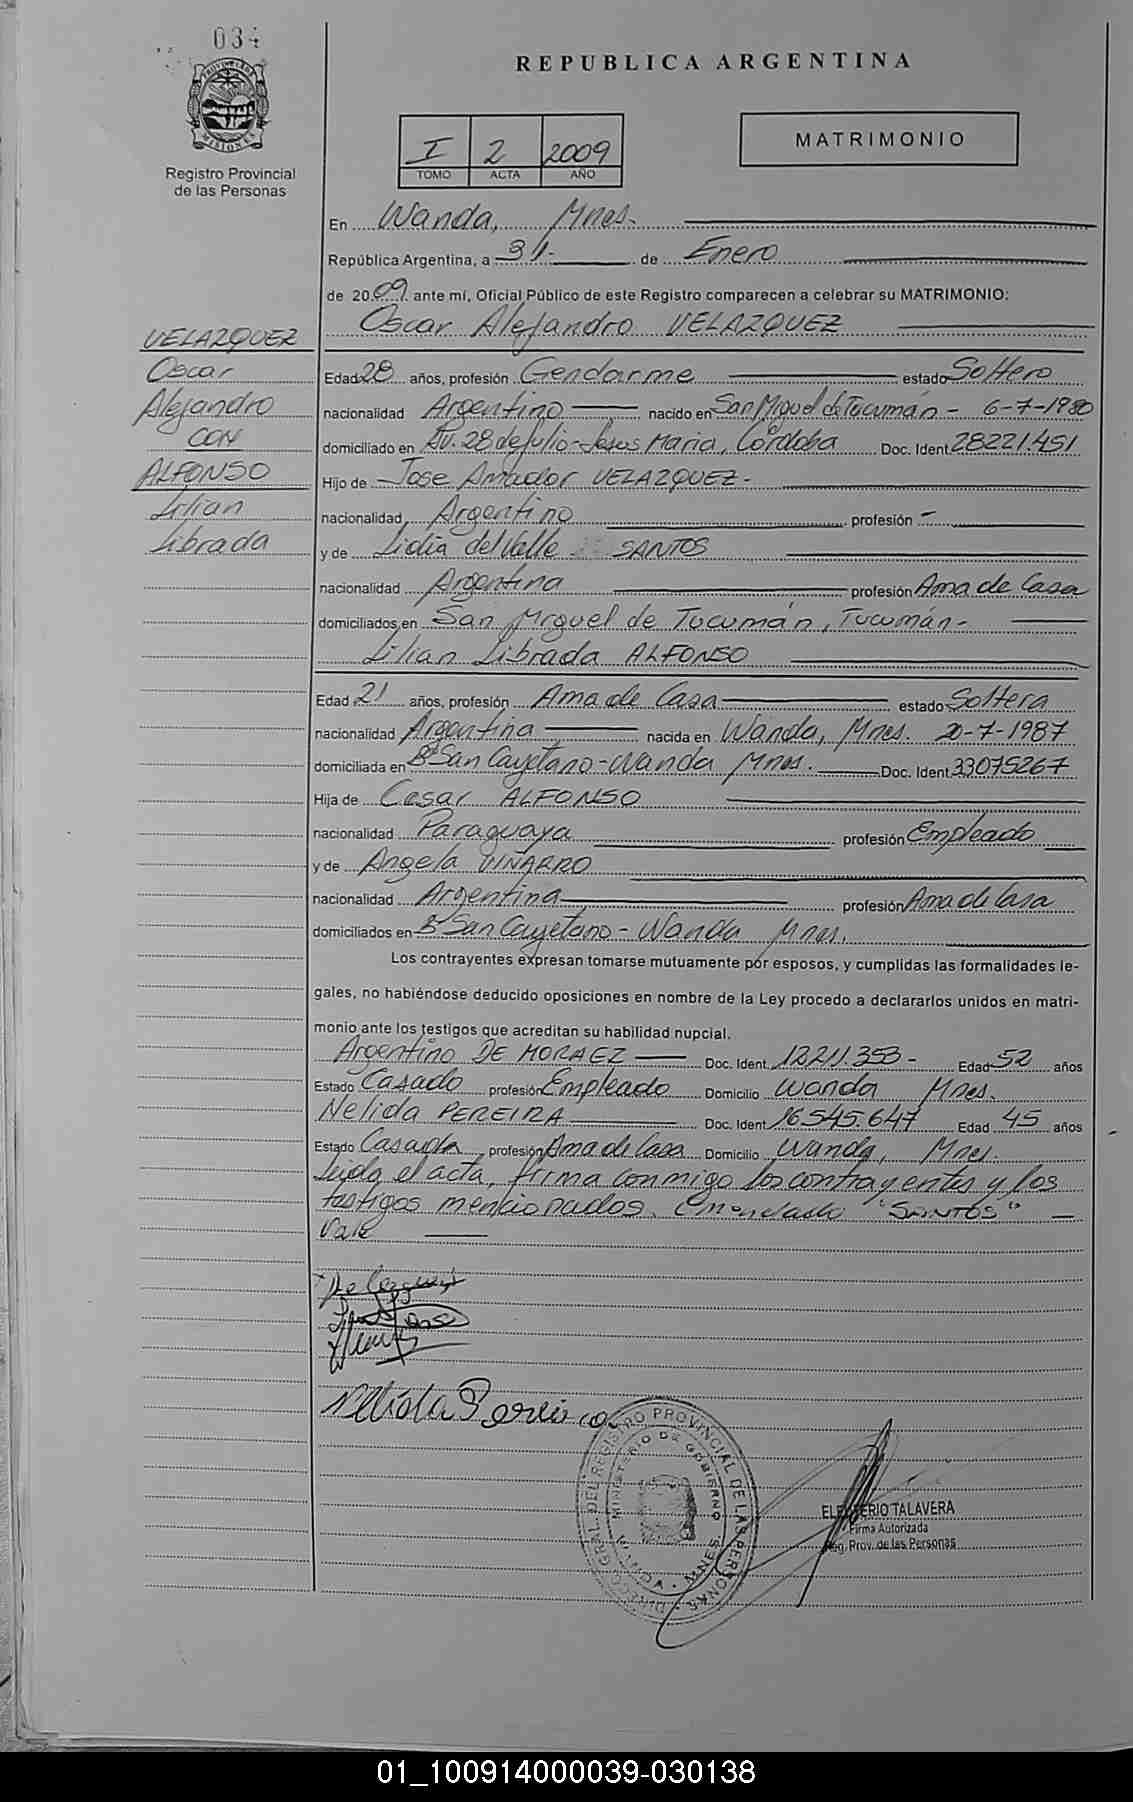 034
PROVINCIA DE MISIONES
Registro Provincial
de las Personas
REPUBLICA ARGENTINA
MATRIMONIO
I 2 2009
TOMO ACTA AÑO
En Wanda, Mnes.
República Argentina, a 31- de Enero
de 2009 ante mí, Oficial Público de este Registro comparecen a celebrar su MATRIMONIO:
Oscar Alejandro VELAZQUEZ
VELAZQUEZ
Oscar
Alejandro
CON
ALFONSO
Lilian
Librada
Edad 28 años, profesión Gendarme estado Soltero
nacionalidad Argentino nacido en San Miguel de Tucumán - 6-7-1980
domiciliado en Av. 28 de Julio - Jesus Maria, Córdoba Doc. Ident. 28221.451
Hijo de Jose Amador VELAZQUEZ-
nacionalidad Argentino profesión -
y de Lidia del Valle SANTOS
nacionalidad Argentina profesión Ama de Casa
domiciliados en San Miguel de Tucumán, Tucumán-
Lilian Librada ALFONSO
Edad 21 años, profesión Ama de Casa estado Soltera
nacionalidad Argentina nacida en Wanda, Mnes. 20-7-1987
domiciliada en Bº San Cayetano - Wanda Mnes. Doc. Ident. 33075267
Hija de Cesar ALFONSO
nacionalidad Paraguaya profesión Empleado
y de Angela VIÑARRO
nacionalidad Argentina profesión Ama de Casa
domiciliados en Bº San Cayetano - Wanda Mnes.
Los contrayentes expresan tomarse mutuamente por esposos, y cumplidas las formalidades le-
gales, no habiéndose deducido oposiciones en nombre de la Ley procedo a declararlos unidos en matri-
monio ante los testigos que acreditan su habilidad nupcial.
Argentino DE MORAEZ Doc. Ident. 12211.353- Edad 52 años
Estado Casado profesión Empleado Domicilio Wanda Mnes.
Nelida PEREIRA Doc. Ident. 16545.647 Edad 45 años
Estado Casada profesión Ama de Casa Domicilio Wanda, Mnes.
Leida el acta, firma conmigo los contrayentes y los
testigos mencionados. Enmendado "SANTOS"
Vale
Nelida Pereira
DIRECC. GRAL. DEL REGISTRO PROVINCIAL DE LAS PERSONAS
MINISTERIO DE GOBIERNO
WANDA - MNES
ELEUTERIO TALAVERA
Firma Autorizada
Reg. Prov. de las Personas
01_100914000039-030138